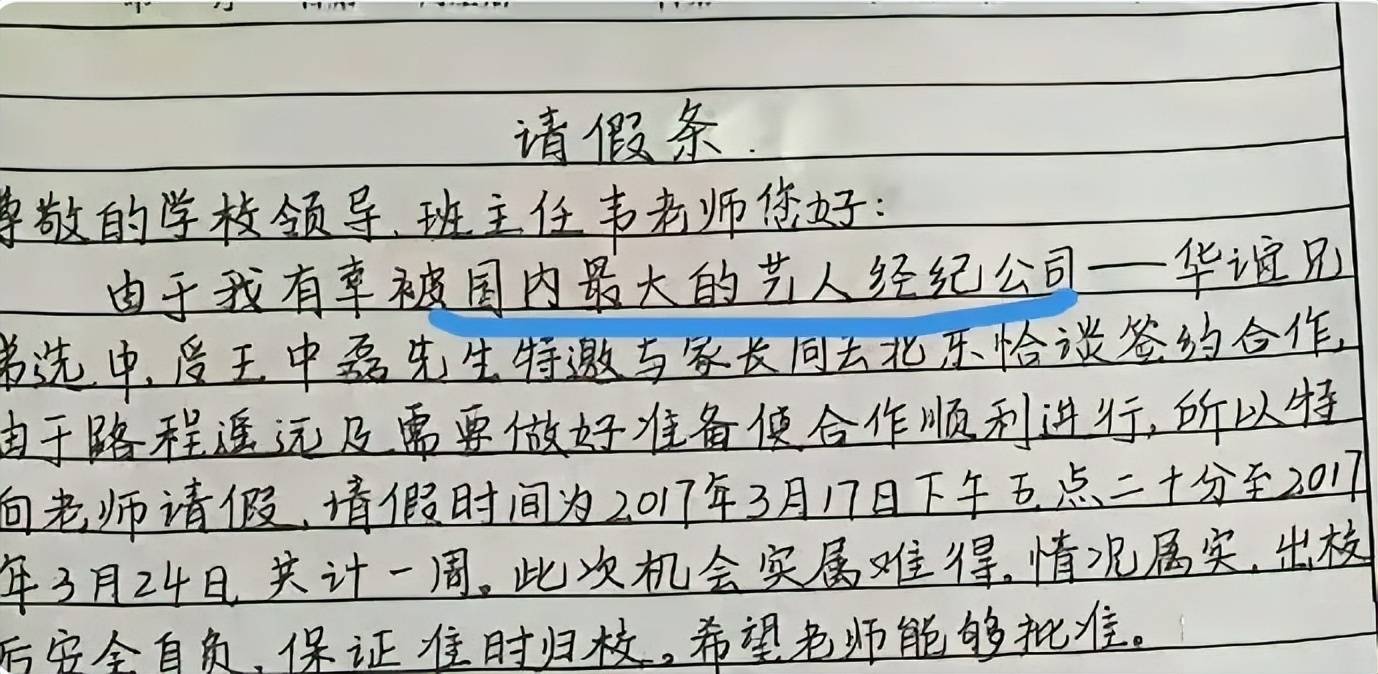 请假条.
尊敬的学校领导、班主任韦老师您好：
由于我有幸被国内最大的艺人经纪公司——华谊兄
弟选中，受王中磊先生特邀与家长同去北京恰谈签约合作，
由于路程遥远及需要做好准备使合作顺利进行，所以特
向老师请假，请假时间为2017年3月17日下午五点二十分至2017
年3月24日，共计一周。此次机会实属难得。情况属实，出校
后安全自负，保证准时归校。希望老师能够批准。